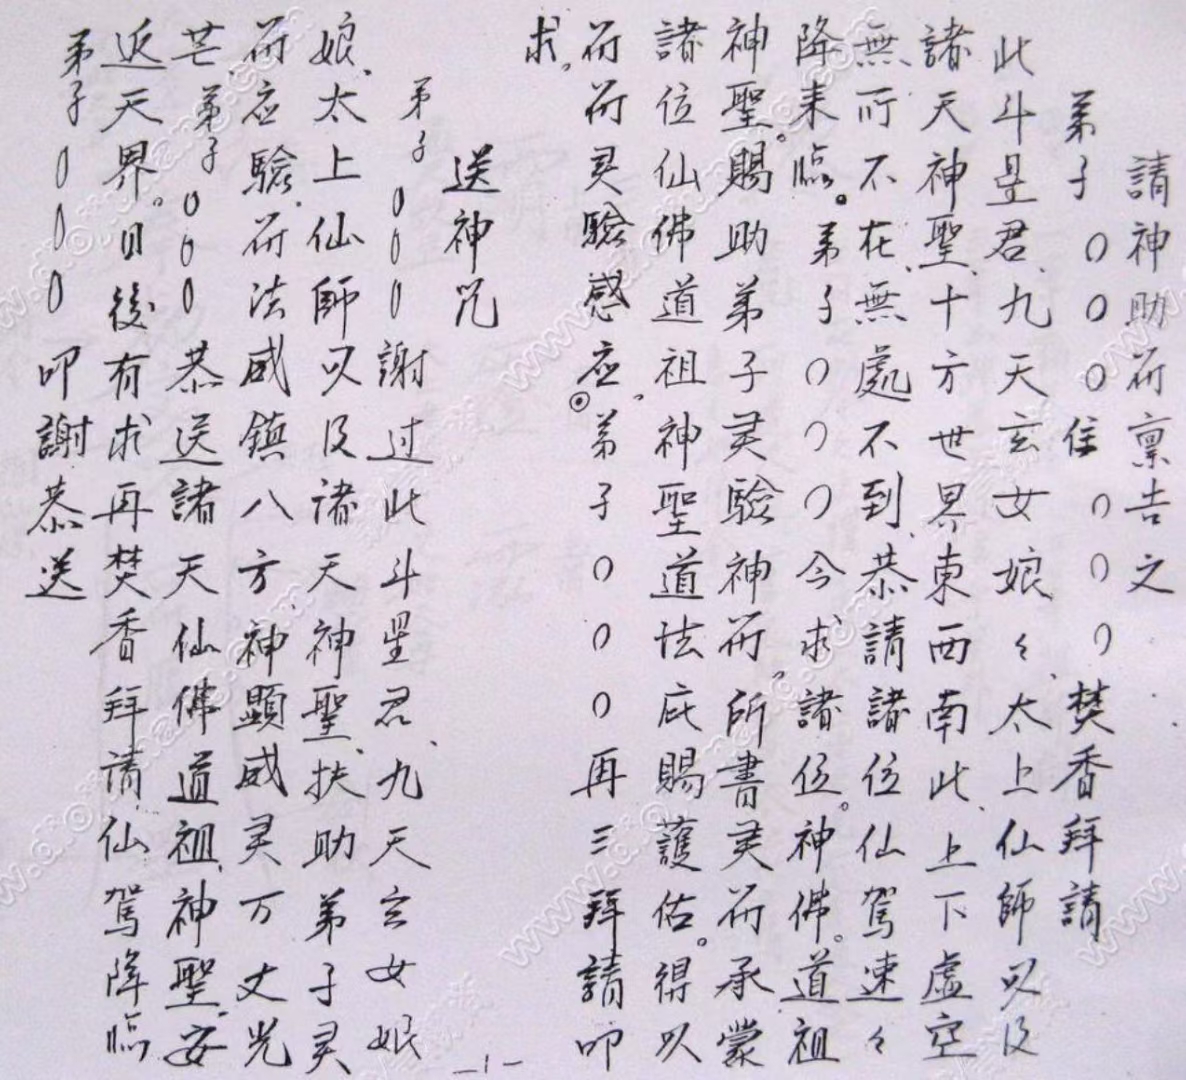 請神助符禀告之
弟子〇〇〇住〇〇〇焚香拜請
此斗星君、九天玄女娘々、太上仙師以及
諸天神聖、十方世界東西南此、上下虛空
無所不在、無處不到、恭請諸位仙駕速々
降来臨。弟子〇〇〇今求諸位。神佛。道祖
神聖。賜助弟子灵驗神符。所書灵符承蒙
諸位仙佛道祖神聖道法庇賜護佑。得以
符符灵驗感应。弟子〇〇〇再三拜請叩
求。
送神咒
弟子〇〇〇謝过此斗星君、九天玄女娘
娘、太上仙師以及諸天神聖、扶助弟子灵
符应驗、符法威鎮八方、神顯威灵万丈光
芒、弟子〇〇〇恭送諸天仙佛道祖、神聖、安
返天界。日後有求再焚香拜请、仙駕降臨
弟子〇〇〇叩謝恭送
-1-